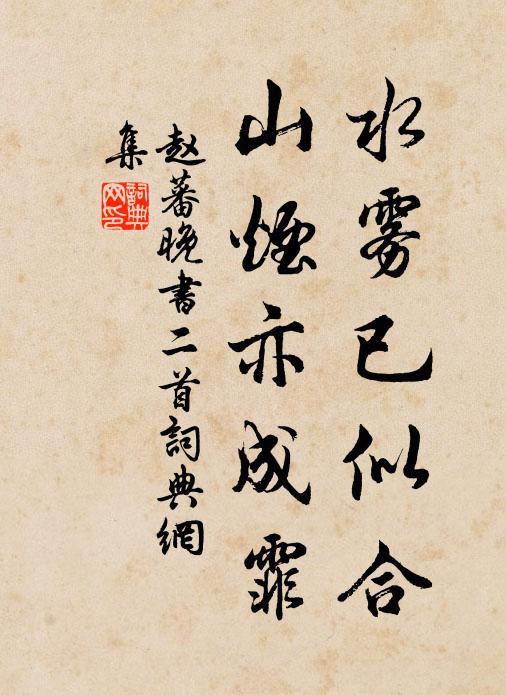 水雾已似合
山煙亦成霏
赵蕃晚書二首詞典網
集
詞典网印